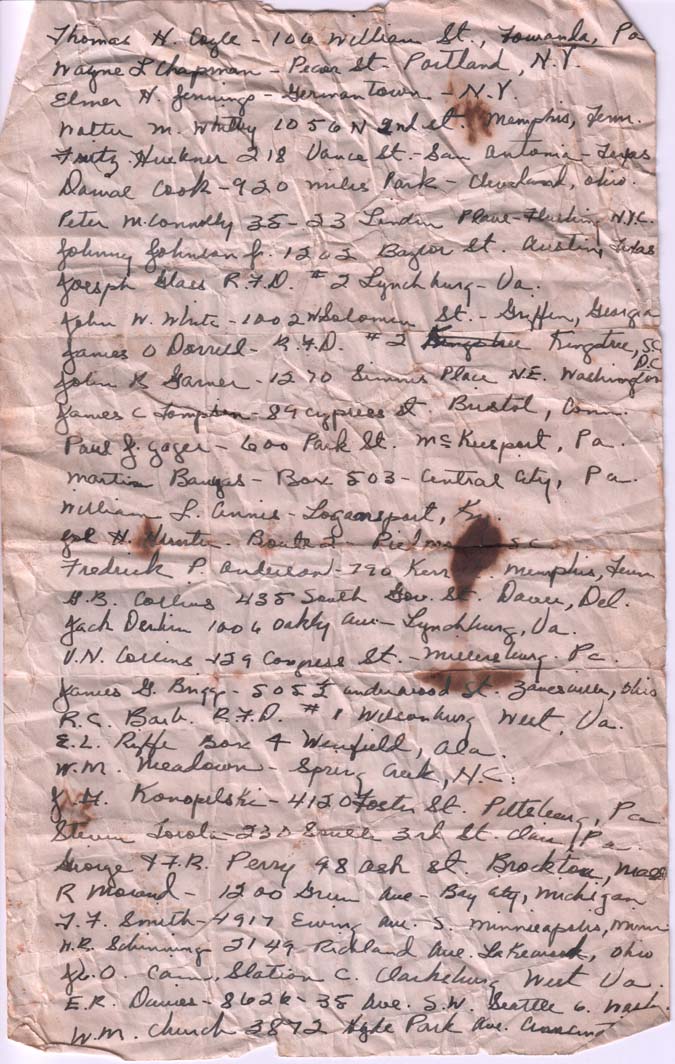 Thomas H. Coyle - 106 William St., Towanda, Pa
Wayne L Chapman - Pecor St Portland, N.Y.
Elmer H. Jennings - Germantown - N.Y.
Walter M. Whitley 1056 N 2nd St. Memphis, Tenn.
Fritz Hueckner 218 Vance St. - San Antonio - Texas
Cook - 920 Miles Park - Cleveland, Ohio.
Peter McConnolly 35-23 Linden Place - Flushing N.Y.C.
Johnny Johnson Jr. 1202 Baylor St. Austin, Texas
Joesph Glaes R.F.D. #2 Lynchburg - Va.
John W. White - 1002 W Solomon St. - Griffin, Georgia
James O Dorrell - R.F.D. #2 Kingstree Kingtree, SC
John K Garner - 1270 Simms Place N.E. Washington D.C
James C Tompson - 89 Cypress St Bristol, Conn.
Paul J. Yager - 600 Park St. McKeesport, Pa.
Martin Bangas - Box 503 - Central City, Pa.
William L. Annis - Logansport, Ky.
H. Hunter - Route 2 Piedm S.C.
Fredrick P. Anderson - 790 Kerr Memphis, Tenn
G.B. Collins 435 South Gov. St. Dover, Del.
Jack Derkin 1006 Oakly Ave - Lynchburg, Va.
V.N. Collins - 129 Congress St. - Millersburg - Pa.
James G. Briggs - 505½ Underwood St. Zanesville, Ohio
R.C. Barb. R.F.D. #1 Wilsonburg West, Va.
E.L. Riffe Box 4 Winfield, Ala.
W.M. Meadown - Spring Creek, N.C.
J.H. Konopelski - 4120 Foster St. Pittsburg, Pa
Steven Torola - 230 South 3rd St. Clair, Pa.
George & F.R. Perry 98 Ash St. Brockton, Mass
R Morand - 1200 Green Ave - Bay City, Michigan
T.F. Smith - 4917 Ewing Ave. S. Minneapolis, Minn
H.R. Schinning 2149 Richland Ave. Lakewood, Ohio
O. Cain, Station C. Clarksburg West Va.
E.R. Davies - 8626 - 35 Ave. S.W. Seattle 6. Wash.
W.M. Church 3872 Hyde Park Ave. Cincinnati